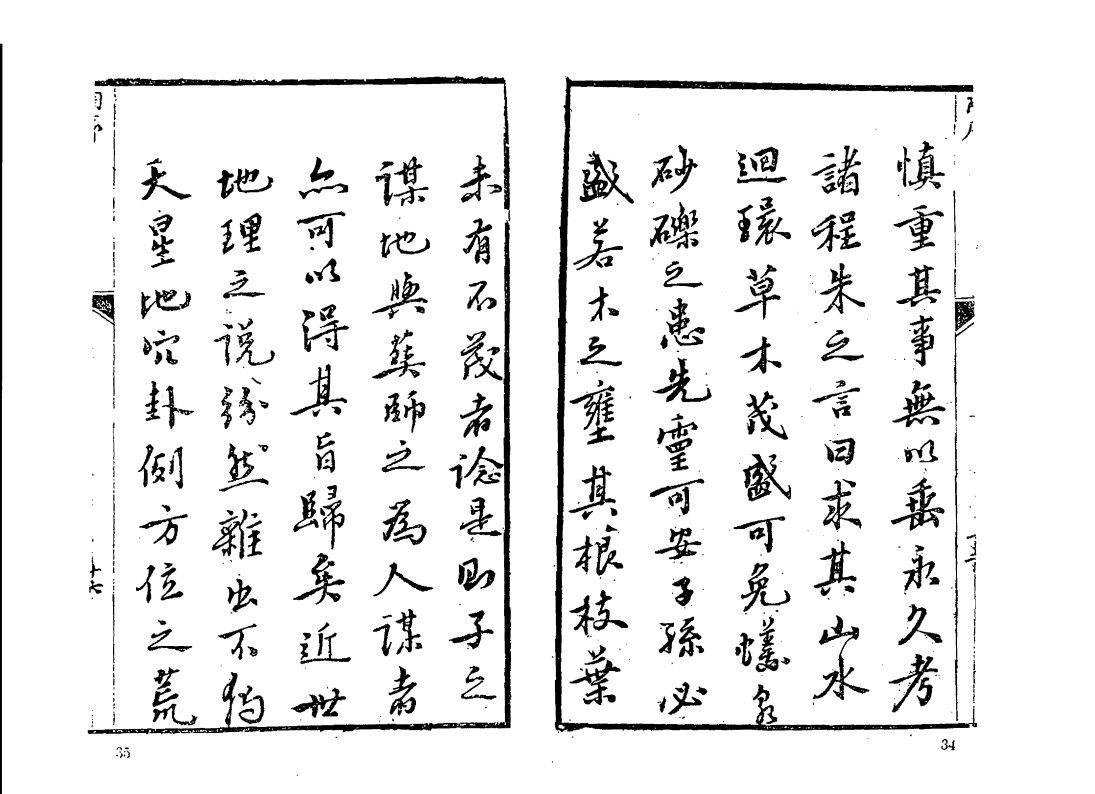 慎重其事無以垂永久考
諸程朱之言曰求其山水
迴環草木茂盛可免螻泉
砂礫之患先靈可安子孫必
盛若木之壅其根枝葉
34
未有不茂者諗是則子之
謀地與葬師之為人謀者
亦可以得其旨歸矣近世
地理之說紛然雜出不獨
天星地穴卦例方位之荒
十七
35